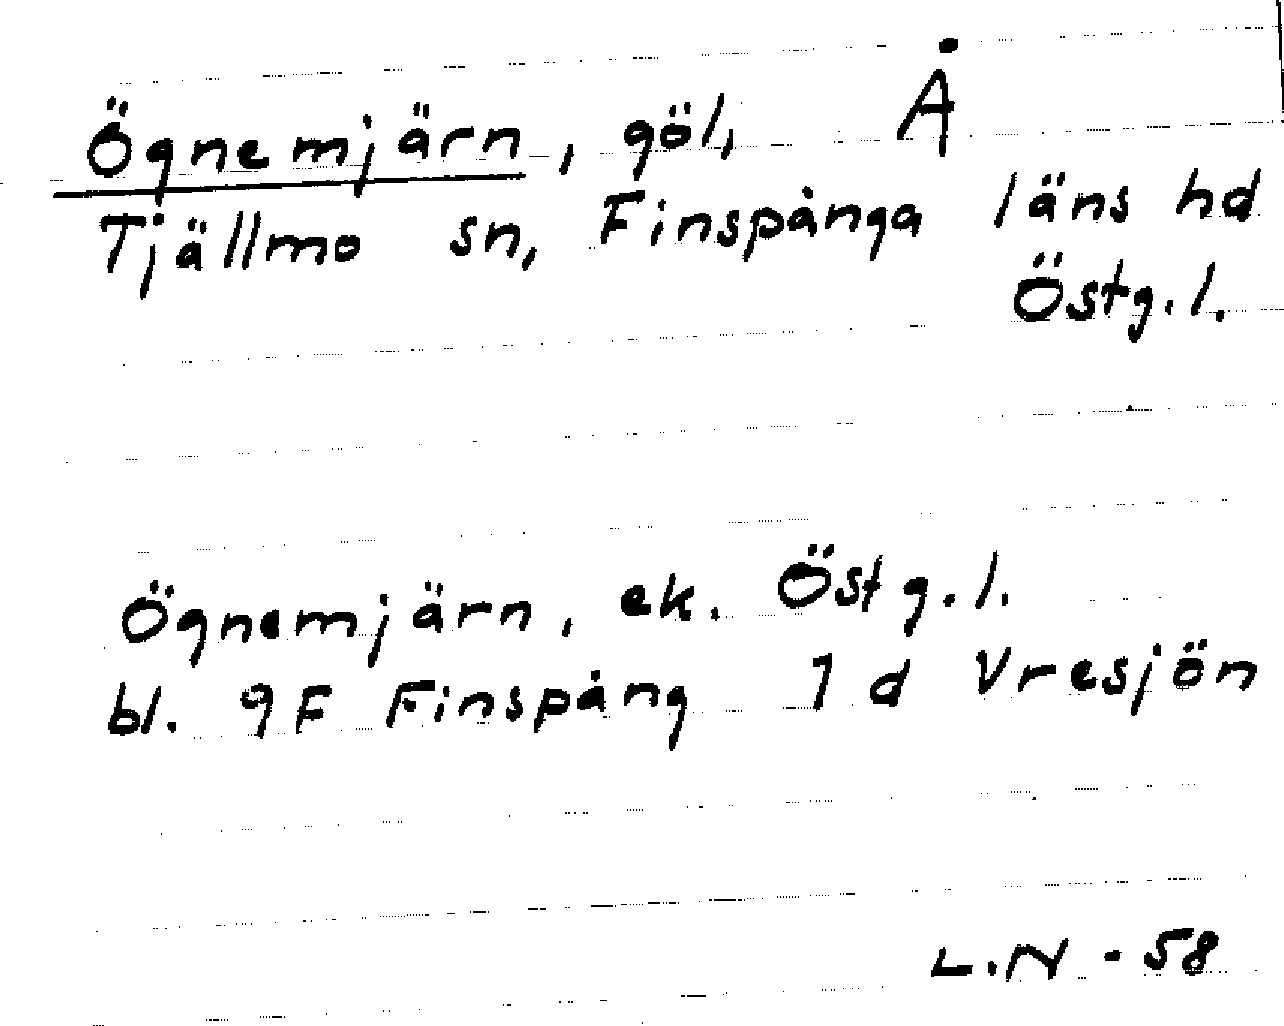 Ögnemjärn, göl, Å
Tjällmo sn, Finspånga läns hd
Östg.l.
Ögnemjärn, ek. Östg.l.
bl. 9F Finspång 1 d Vresjön
L.N - 58